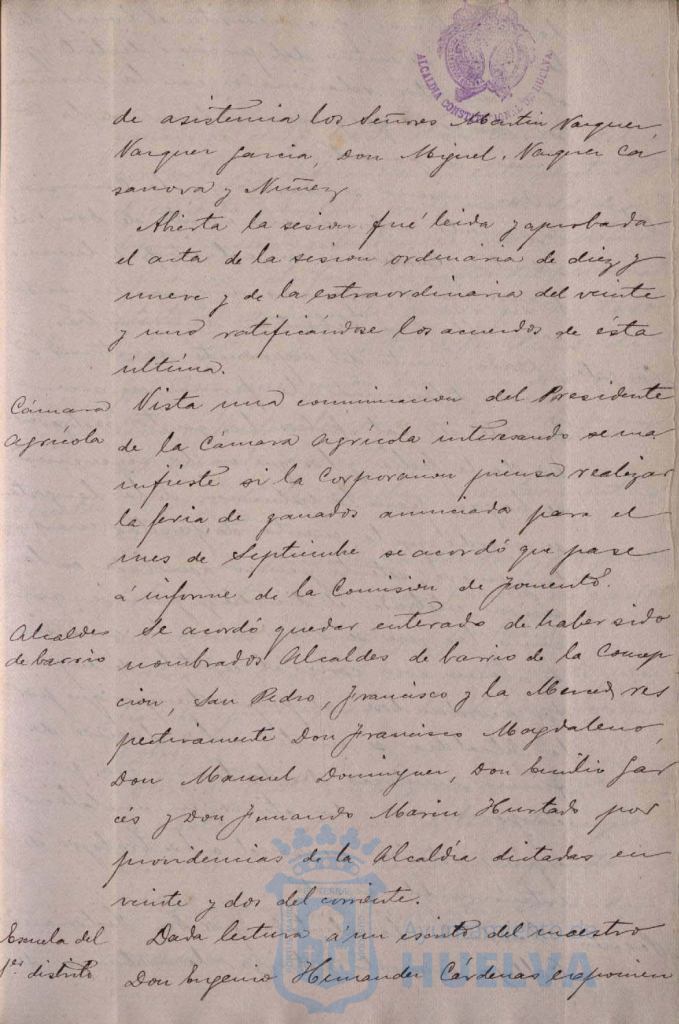 ALCALDIA CONSTITUCIONAL DE HUELVA
de asistencia los Señores Martin Vazquez,
Vazquez Garcia, Don Miguel, Vazquez Ca
sanova y Nuñez,
Abierta la sesion fué leida y aprobada
el acta de la sesion ordinaria de diez y
nueve y de la extraordinaria del veinte
y uno ratificándose los acuerdos de ésta
última.
Cámara
Agrícola
Vista una comunicacion del Presidente
de la Cámara Agrícola interesando se ma
nifieste si la Corporacion piensa realizar
la feria de ganados anunciada para el
mes de Septiembre se acordó que pase
á informe de la Comision de fomento.
Alcaldes
de barrio
Se acordó quedar enterado de haber sido
nombrados Alcaldes de barrio de la Concep
cion, San Pedro, Francisco y la Merced, res
pectivamente Don Francisco Magdaleno,
Don Manuel Dominguez, Don Emilio Gar
cés y Don Fernando Marin Hurtado por
providencias de la Alcaldía dictadas en
veinte y dos del corriente.
Escuela del
1er distrito
Dada lectura á un escrito del maestro
Don Eugenio Hernandez Cárdenas exponien
HUELVA